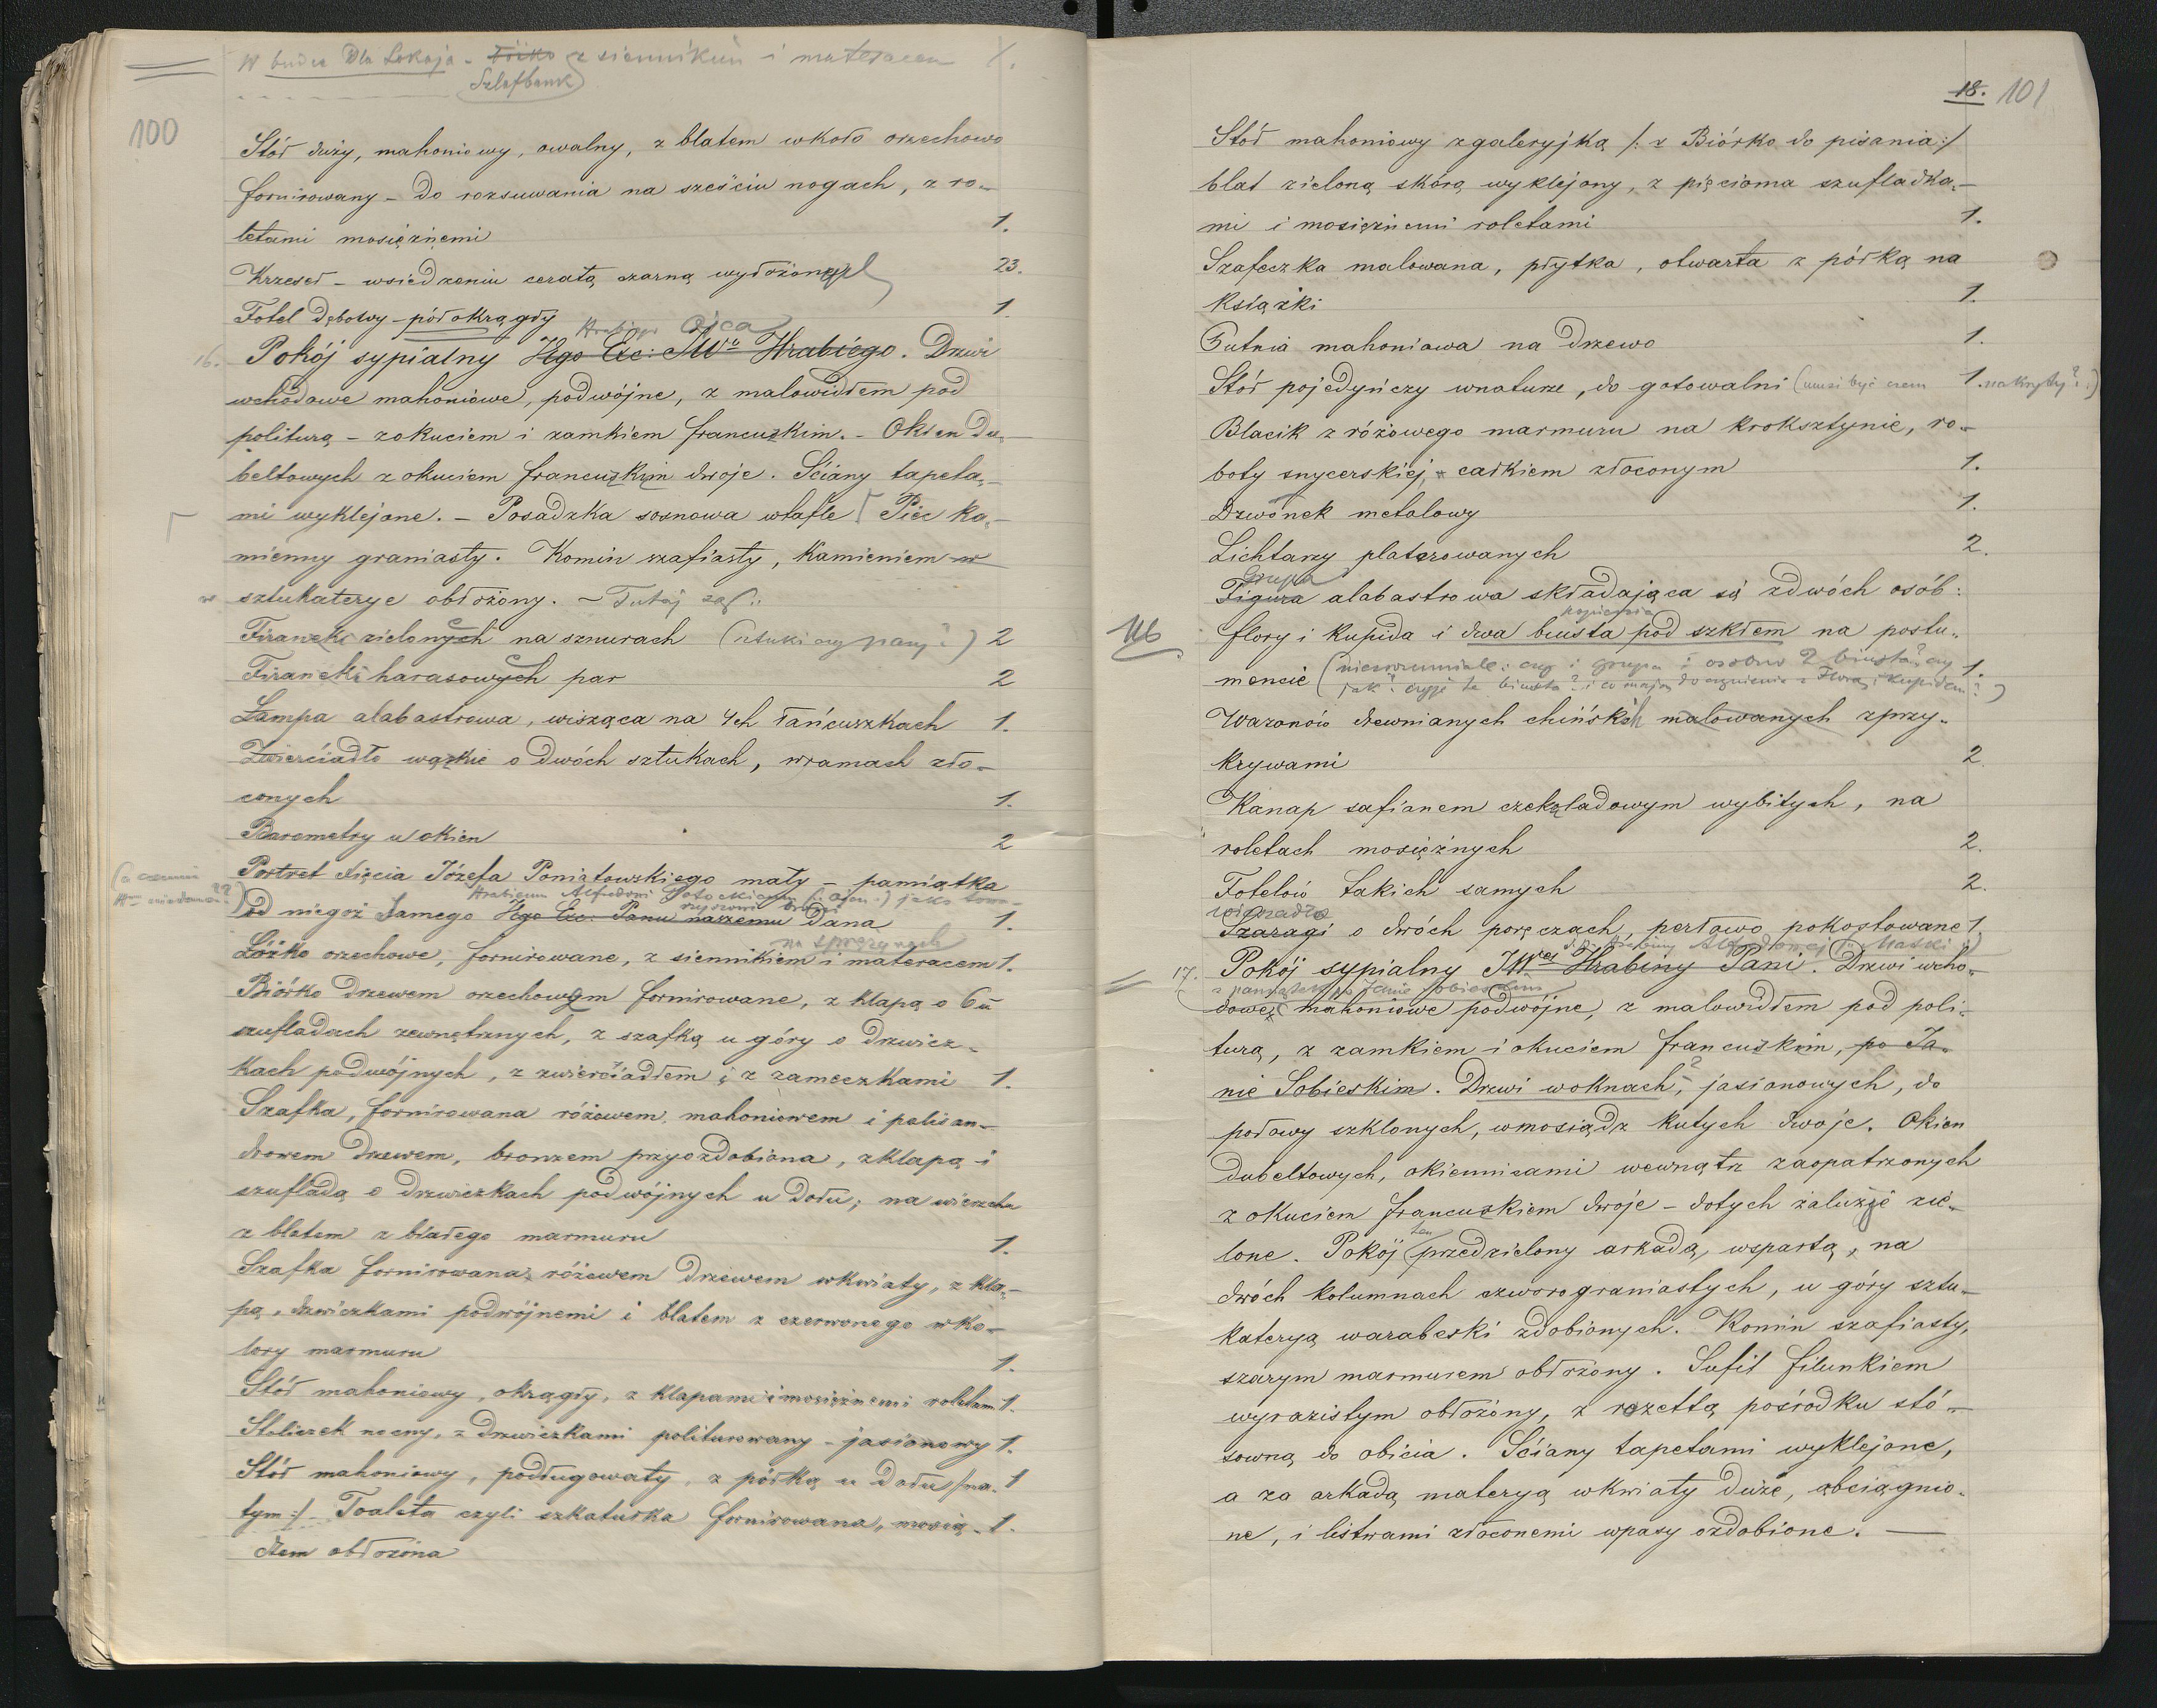 W budce Dla Lokaja - Łóżko z siennikiem i materacem 1.
Szlafbank
100
Stół duży, mahoniowy, owalny, z blatem wkoło orzechowo
fornirowany - Do rozsuwania na sześciu nogach, z ro-
letami mosiężnemi 1.
Krzeseł - wsiedzeniu ceratą czarną wyłożonych 23.
Fotel dębowy - półokrągły 1.
Hrabiego Ojca
16. Pokój sypialny Jgo Exc: JWo Hrabiego. Drzwi
wchodowe mahoniowe, podwójne, z malowidłem pod
politurą - zokuciem i zamkiem francuzkim. - Okien du-
beltowych z okuciem francuzkim dwoje. Ściany tapeta-
mi wyklejone. - Posadzka sosnowa wtafle Piec ka-
mienny graniasty. Komin szafiasty, kamieniem w
w sztukaterye obłożony. - Tutaj zaś:
Firanek zielonych na sznurach (sztuki czy pary?) 2
Firanek harasowych par 2
Lampa alabastrowa, wisząca na 4ch łańcuszkach 1.
Zwierciadło wązkie o dwóch sztukach, wramach zło-
conych 1.
Barometry u okien 2
Portret Xięcia Józefa Poniatowskiego mały - pamiątka
Hrabiemu Alfredowi Potockiemu (: ojcu :) jako towa-
rzyszowi broni
od niegoż samego Jgo Exc: Panu naszemu Dana 1.
na sprężynach
Łóżko orzechowe, fornirowane, z siennikiem i materacem 1.
Biórko drzewem orzechowem fornirowane, z klapą o 6u
szufladach zewnętrznych, z szafką u góry o drzwicz-
kach podwójnych, z zwierciadłem i z zameczkami 1.
Szafka, fornirowana różowem, mahoniowem i palisan-
drowem drzewem, bronzem przyozdobiona, z klapą i
szufladą o drzwiczkach podwójnych u dołu; na wierzchu
z blatem z białego marmuru 1.
Szafka fornirowana różowem drzewem wkwiaty, z kla-
pą, drzwiczkami podwójnemi i blatem z czerwonego wko-
lory marmuru 1.
Stół mahoniowy, okrągły, z klapami i mosiężnemi roletami 1.
Stoliczek nocny, z drzwiczkami politurowany - jasionowy 1.
Stół mahoniowy, podługowaty, z półką u dołu /:na- 1
tym:/ - Toaleta czyli szkatułka fornirowana, mosią- 1.
dzem obłożona
18. 101
Stół mahoniowy zgaleryjką /: z Biórko do pisania:/
blat zieloną skórą wyklejony, z pięcioma szufladka-
mi i mosiężnemi roletami 1.
Szafeczka malowana, płytka, otwarta z półką na
książki 1.
Futnia mahoniowa na drzewo 1.
Stół pojedyńczy wnaturze, do gotowalni (musi być czem nakryty?..) 1.
Blacik z różowego marmuru na kroksztynie, ro-
boty snycerskiej, całkiem złoconym 1.
Dzwonek metalowy 1.
Lichtarzy platerowanych 2.
Grupa
Figura alabastrowa składająca się zdwóch osób:
popiersia
flory i Kupida i dwa biusta pod szkłem na postu-
mencie (niezrozumiałe: czy i grupa i osobno 2 biusta?, czy 1.
jak? czyje te biusta? i co mają do czynienia z Florą i Kupidem?)
Wazonów drewnianych chińskich malowanych zprzy-
krywami 2.
Kanap safianem czekoladowym wybitych, na
roletach mosiężnych 2.
Fotelów takich samych 2.
wieszadło
Szaragi o dwóch poręczach, perłowo pokostowane 1.
Hrabiny Alfredowej (: Matki :)
17. Pokój sypialny JWej Hrabiny Pani. Drzwi wcho-
z pamiątek po Janie Sobieskim
dowe mahoniowe podwójne, z malowidłem pod poli-
turą, z zamkiem i okuciem francuzkim, po Ja-
nie Sobieskim. Drzwi woknach?, jasionowych, do
połowy szklonych, wmosiądz kutych dwoje. Okien
dubeltowych, okiennicami wewnątrz zaopatrzonych
z okuciem francuzkiem dwoje - dotych żaluzje zie-
lone. Pokój ten przedzielony arkadą, wspartą, na
dwóch kolumnach czworograniastych, u góry sztu-
kateryą warabeski zdobionych. Komin szafiasty,
szarym marmurem obłożony. Sufit filunkiem
wyrazistym obłożony, z rozettą pośrodku stó-
sowną do obicia. Ściany tapetami wyklejone,
a za arkadą materyą wkwiaty duże, obciągnio-
ne, i listwami złoconemi wpasy ozdobione. —